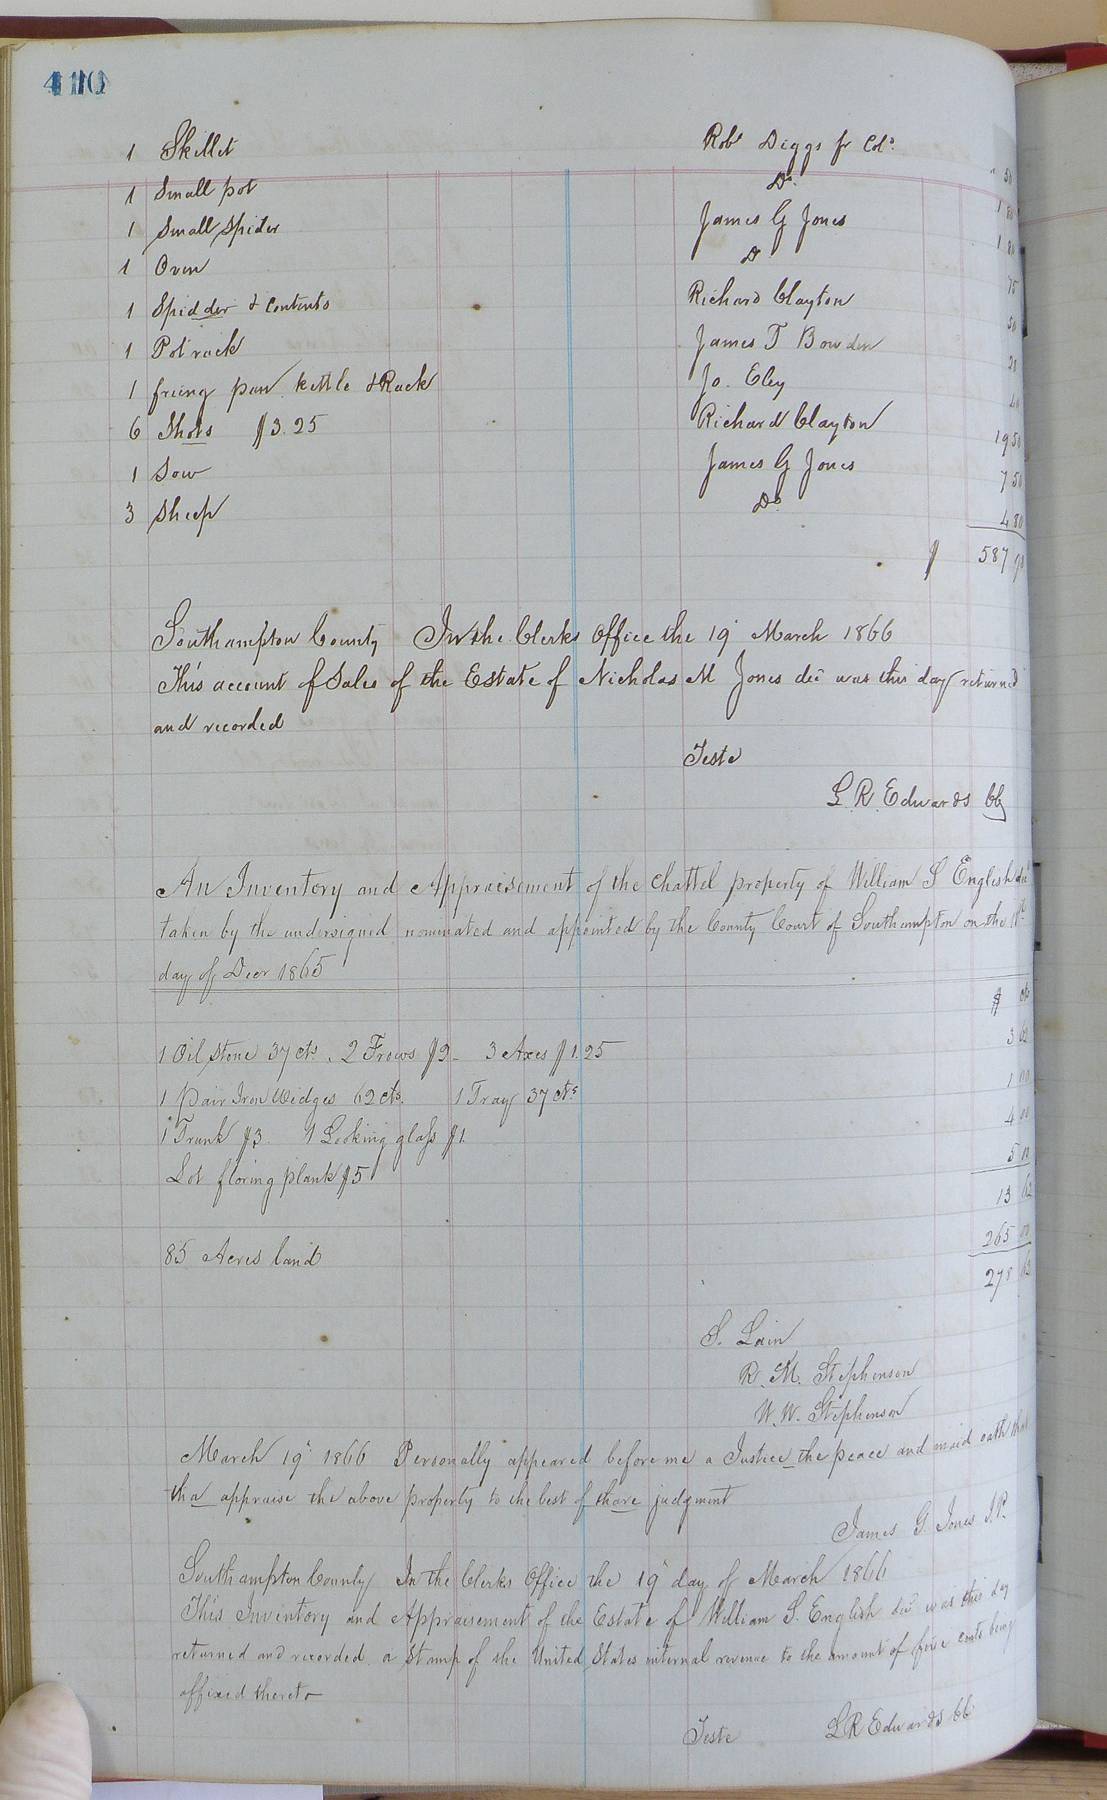 410
1 Skillet Robt Diggs fr Cold. 50
1 Small pot Do.
1 Small Spider James G Jones
1 Oven Do
1 Spidder & Contents Richard Clayton 50
1 Pot rack James T Bowden
1 friing pan kettle & Rack Jo. Eley
6 Shots $3.25 Richard Clayton 19 50
1 Sow James G Jones 7 50
3 Sheep Do 4 80
$ 587
Southampton County In the Clerks Office the 19 March 1866
This account of Sales of the Estate of Nicholas M Jones decd was this day returned
and recorded
Teste
L R Edwards CC
An Inventory and Appraisement of the Chattel property of William S English decd
taken by the undersigned nominated and appointed by the County Court of Southampton on the
day of Decr 1865
$ cts
1 Oil Stone 37 cts. 2 Frows $2 - 3 Axes $1.25 3 62
1 Pair Iron Widges 62 cts. 1 Tray 37 cts 1 00
1 Trunk $3. 1 Looking glass $1. 4 00
Lot floring plank $5 5 00
13 62
85 Acres land 265 00
278 62
S. Lain
R. M. Stephenson
W. W. Stephenson
March 19th 1866 Personally appeared before me a Justice the peace and maid oath that
tha appraise the above property to the best of thare judgment
James G. Jones J.P.
Southampton County In the Clerks Office the 19th day of March 1866
This Inventory and Appraisement of the Estate of William S. English decd was this day
returned and recorded a Stamp of the United States internal revenue to the amount of five cents being
affixed thereto
Teste L R Edwards CC